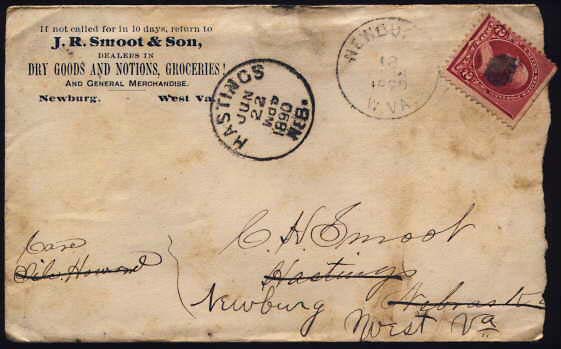 If not called for in 10 days, return to
J. R. Smoot & Son,
DEALERS IN
DRY GOODS AND NOTIONS, GROCERIES!
AND GENERAL MERCHANDISE.
Newburg. West Va
HASTINGS
JUN
22
1890
NEB.
NEWBU
W.VA.
C. H. Smoot
Care
Howard
Hastings
Nebraska
Newburg
West Va